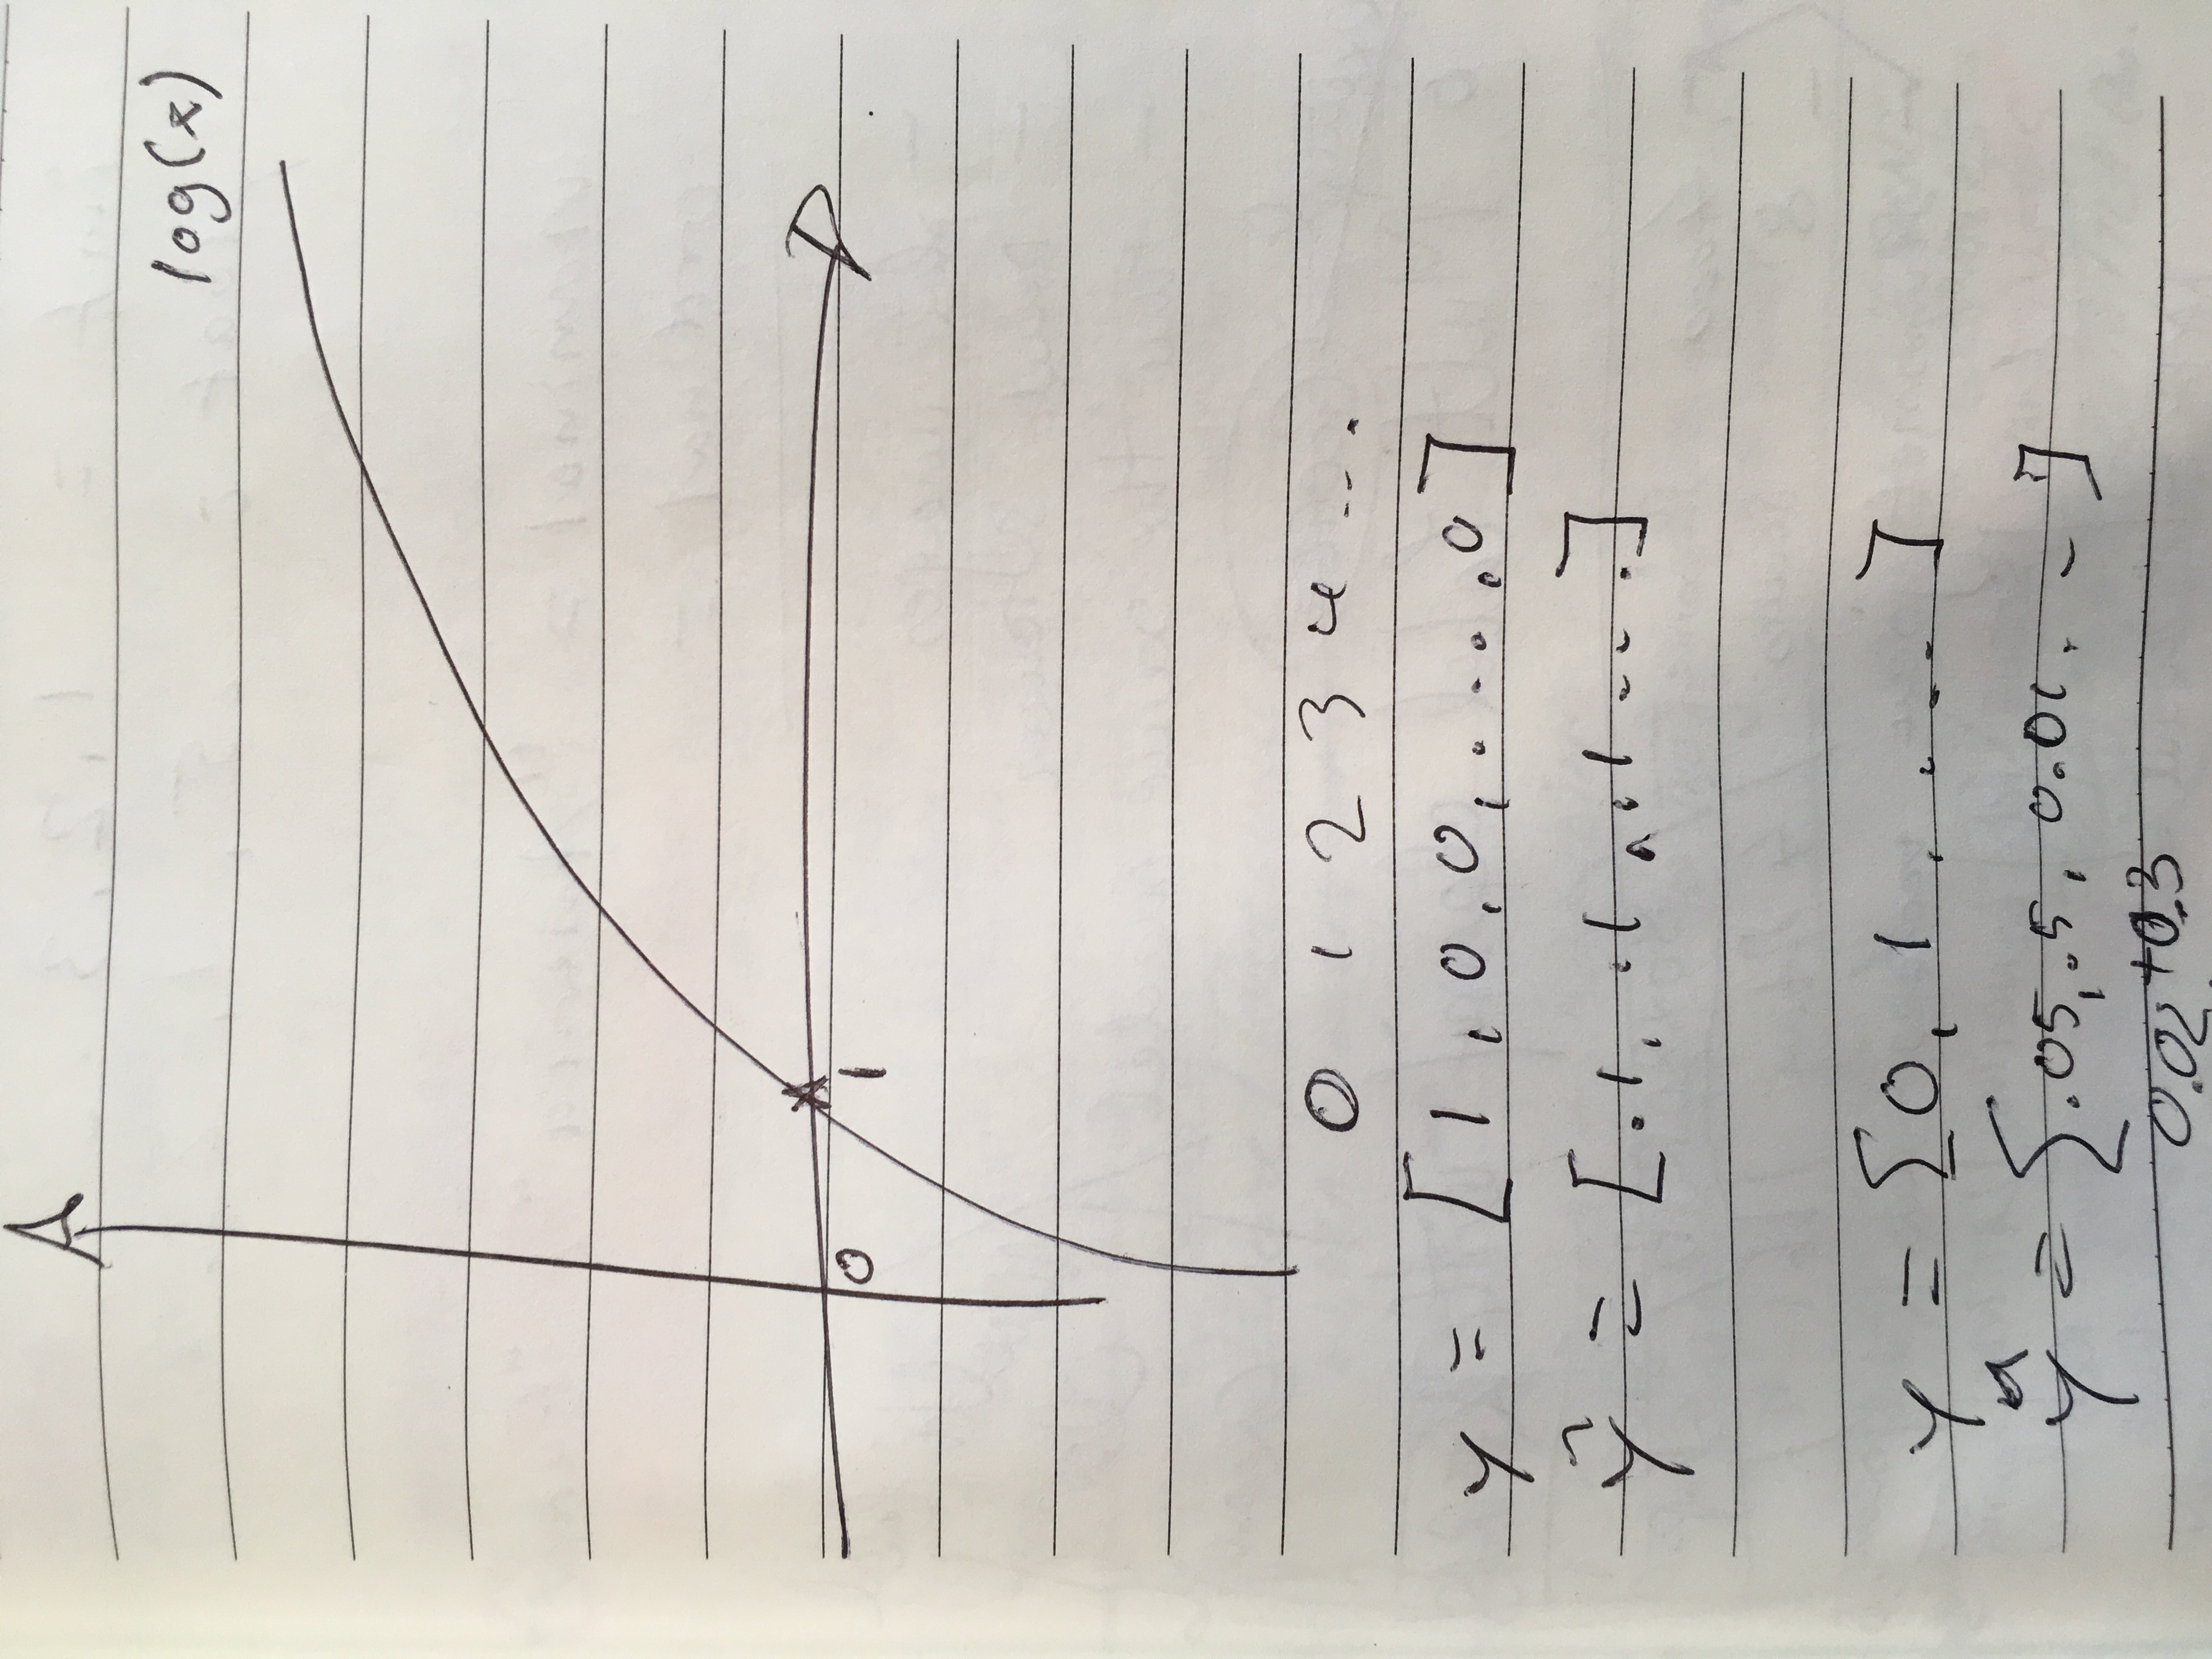 log(x)
0 1
0 1 2 3 4 ...
y = [1, 0, 0, ...., 0]
ŷ = [.1, .1, .1 ....]
y = [0, 1, ....]
ŷ = [.05, .5, 0.01. - ]
0.02 +0.3